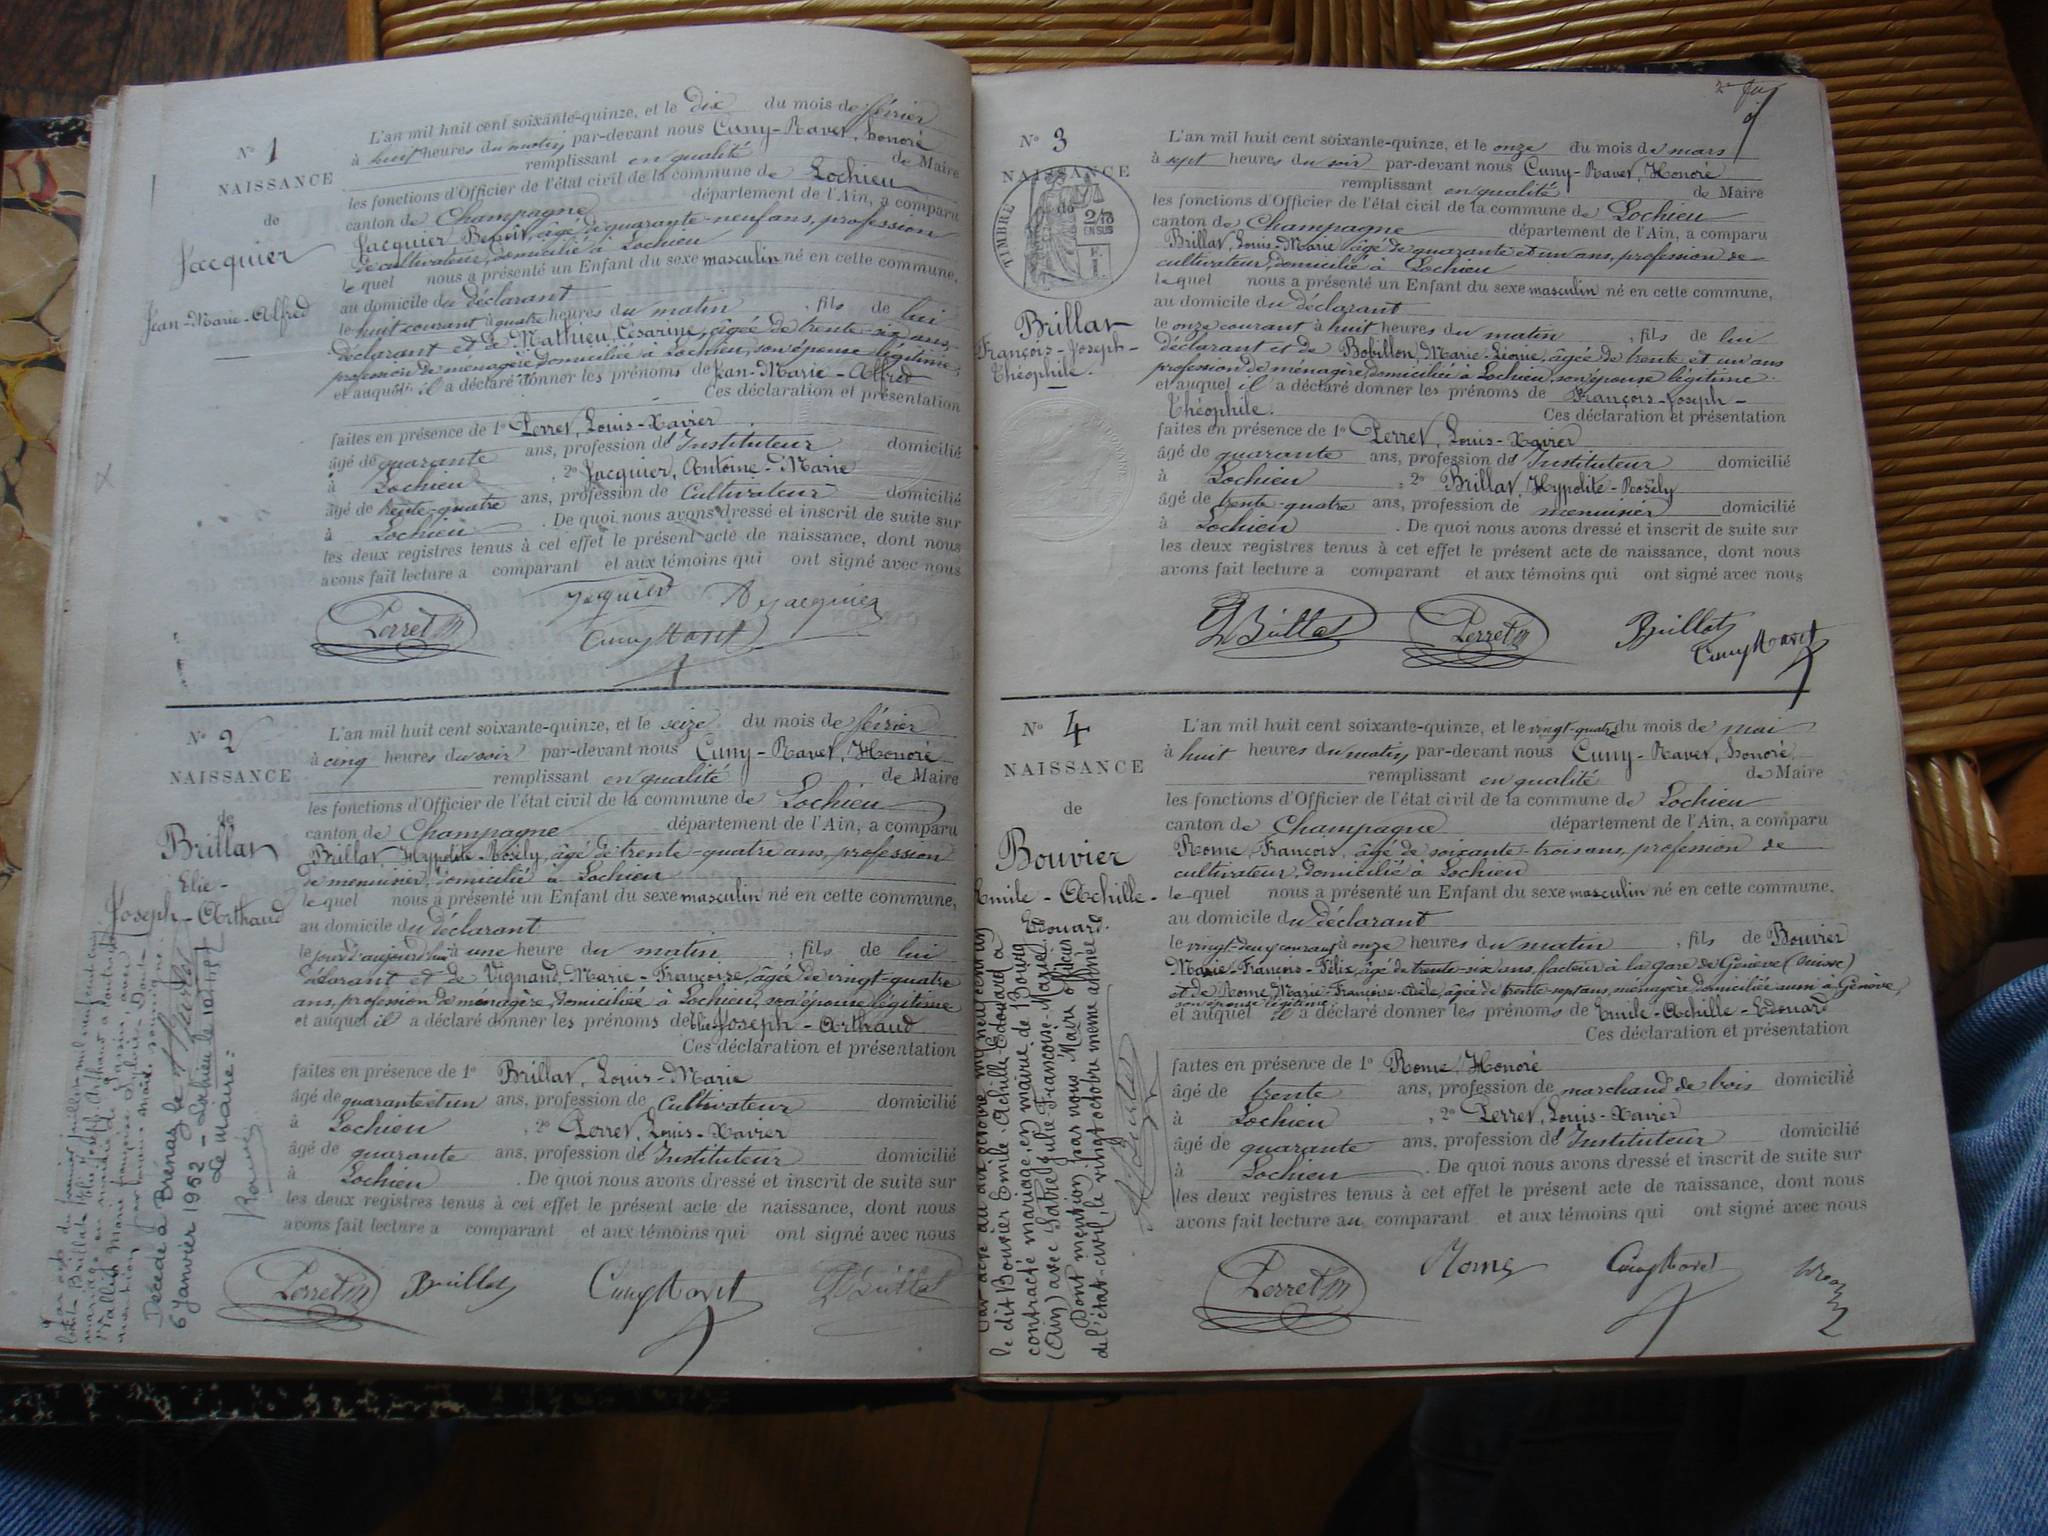 N° 1
NAISSANCE
de
Jacquier
Jean-Marie-Alfred
L'an mil huit cent soixante-quinze, et le dix du mois de février
à huit heures du matin par-devant nous Cuny-Ravet, Honoré
remplissant en qualité de Maire
les fonctions d'Officier de l'état civil de la commune de Lochieu
canton de Champagne département de l'Ain, a comparu
Jacquier Benoit, âgé de quarante-neuf ans, profession
de cultivateur, domicilié à Lochieu
lequel nous a présenté un Enfant du sexe masculin né en cette commune,
au domicile du déclarant
le huit courant à quatre heures du matin, fils de lui
déclarant et de Mathieu, Césarine, âgée de trente-six ans,
profession de ménagère domiciliée à Lochieu, son épouse légitime,
et auquel il a déclaré donner les prénoms de Jean-Marie-Alfred
Ces déclaration et présentation
faites en présence de 1° Perret, Louis-Xavier
âgé de quarante ans, profession d'Instituteur domicilié
à Lochieu, 2° Jacquier, Antoine-Marie
âgé de trente-quatre ans, profession de Cultivateur domicilié
à Lochieu. De quoi nous avons dressé et inscrit de suite sur
les deux registres tenus à cet effet le présent acte de naissance, dont nous
avons fait lecture a comparant et aux témoins qui ont signé avec nous
Jacquier A Jacquier
Perret Cuny Ravet
N° 2
NAISSANCE
de
Brillat
Elie-
Joseph-Arthaud
L'an mil huit cent soixante-quinze, et le seize du mois de février
à cinq heures du soir par-devant nous Cuny-Ravet, Honoré
remplissant en qualité de Maire
les fonctions d'Officier de l'état civil de la commune de Lochieu
canton de Champagne département de l'Ain, a comparu
Brillat, Hypolite-Rosély, âgé de trente-quatre ans, profession
de menuisier, domicilié à Lochieu
lequel nous a présenté un Enfant du sexe masculin né en cette commune,
au domicile du déclarant
le jour d'aujourd'hui à une heure du matin, fils de lui
déclarant et de Vignand, Marie-Françoise, âgée de vingt-quatre
ans, profession de ménagère, domiciliée à Lochieu, son épouse légitime
et auquel il a déclaré donner les prénoms de Elie-Joseph-Arthaud
Ces déclaration et présentation
faites en présence de 1° Brillat, Louis-Marie
âgé de quarante et un ans, profession de Cultivateur domicilié
à Lochieu, 2° Perret, Louis-Xavier
âgé de quarante ans, profession d'Instituteur domicilié
à Lochieu. De quoi nous avons dressé et inscrit de suite sur
les deux registres tenus à cet effet le présent acte de naissance, dont nous
avons fait lecture a comparant et aux témoins qui ont signé avec nous
Perret Brillat Cuny Ravet L Brillat
Décédé à Brénaz le
6 Janvier 1952 - Lochieu le
Le maire:
N° 3
NAISSANCE
de
TIMBRE
2/10
EN SUS
Brillat
François-Joseph-
Théophile.
L'an mil huit cent soixante-quinze, et le onze du mois de mars
à sept heures du soir par-devant nous Cuny-Ravet, Honoré
remplissant en qualité de Maire
les fonctions d'Officier de l'état civil de la commune de Lochieu
canton de Champagne département de l'Ain, a comparu
Brillat, Louis-Marie âgé de quarante et un ans, profession de
cultivateur, domicilié à Lochieu
lequel nous a présenté un Enfant du sexe masculin né en cette commune,
au domicile du déclarant
le onze courant à huit heures du matin, fils de lui
déclarant et de Bobillon, Marie-Léonie, âgée de trente et un ans
profession de ménagère, domiciliée à Lochieu, son épouse légitime
et auquel il a déclaré donner les prénoms de François-Joseph-
Théophile. Ces déclaration et présentation
faites en présence de 1° Perret, Louis-Xavier
âgé de quarante ans, profession d'Instituteur domicilié
à Lochieu, 2° Brillat, Hypolite-Rosély
âgé de trente-quatre ans, profession de menuisier domicilié
à Lochieu. De quoi nous avons dressé et inscrit de suite sur
les deux registres tenus à cet effet le présent acte de naissance, dont nous
avons fait lecture a comparant et aux témoins qui ont signé avec nous
L Brillat Perret Brillat
Cuny Ravet
N° 4
NAISSANCE
de
Bouvier
Emile-Achille-
Edouard.
L'an mil huit cent soixante-quinze, et le vingt-quatre du mois de mai
à huit heures du matin par-devant nous Cuny-Ravet, Honoré
remplissant en qualité de Maire
les fonctions d'Officier de l'état civil de la commune de Lochieu
canton de Champagne département de l'Ain, a comparu
Rome, François, âgé de soixante-trois ans, profession de
cultivateur, domicilié à Lochieu
lequel nous a présenté un Enfant du sexe masculin né en cette commune,
au domicile du déclarant
le vingt-deux courant à onze heures du matin, fils de Bouvier
Marie-François-Félix, âgé de trente-six ans, facteur à la gare de Genève (Suisse)
et de Rome, Marie-Françoise-Adèle, âgée de trente-sept ans, ménagère, domiciliée aussi à Genève,
son épouse légitime;
et auquel il a déclaré donner les prénoms de Emile-Achille-Edouard
Ces déclaration et présentation
faites en présence de 1° Rome, Honoré
âgé de trente ans, profession de marchand de bois domicilié
à Lochieu, 2° Perret, Louis-Xavier
âgé de quarante ans, profession d'Instituteur domicilié
à Lochieu. De quoi nous avons dressé et inscrit de suite sur
les deux registres tenus à cet effet le présent acte de naissance, dont nous
avons fait lecture au comparant et aux témoins qui ont signé avec nous
Perret Rome Cuny Ravet
le dit Bouvier Emile Achille Edouard a
contracté mariage en mairie de Bourg
(Ain) avec Julie Françoise Marie.
Dont mention par nous Maire officier
de l'état-civil, le vingt octobre même année